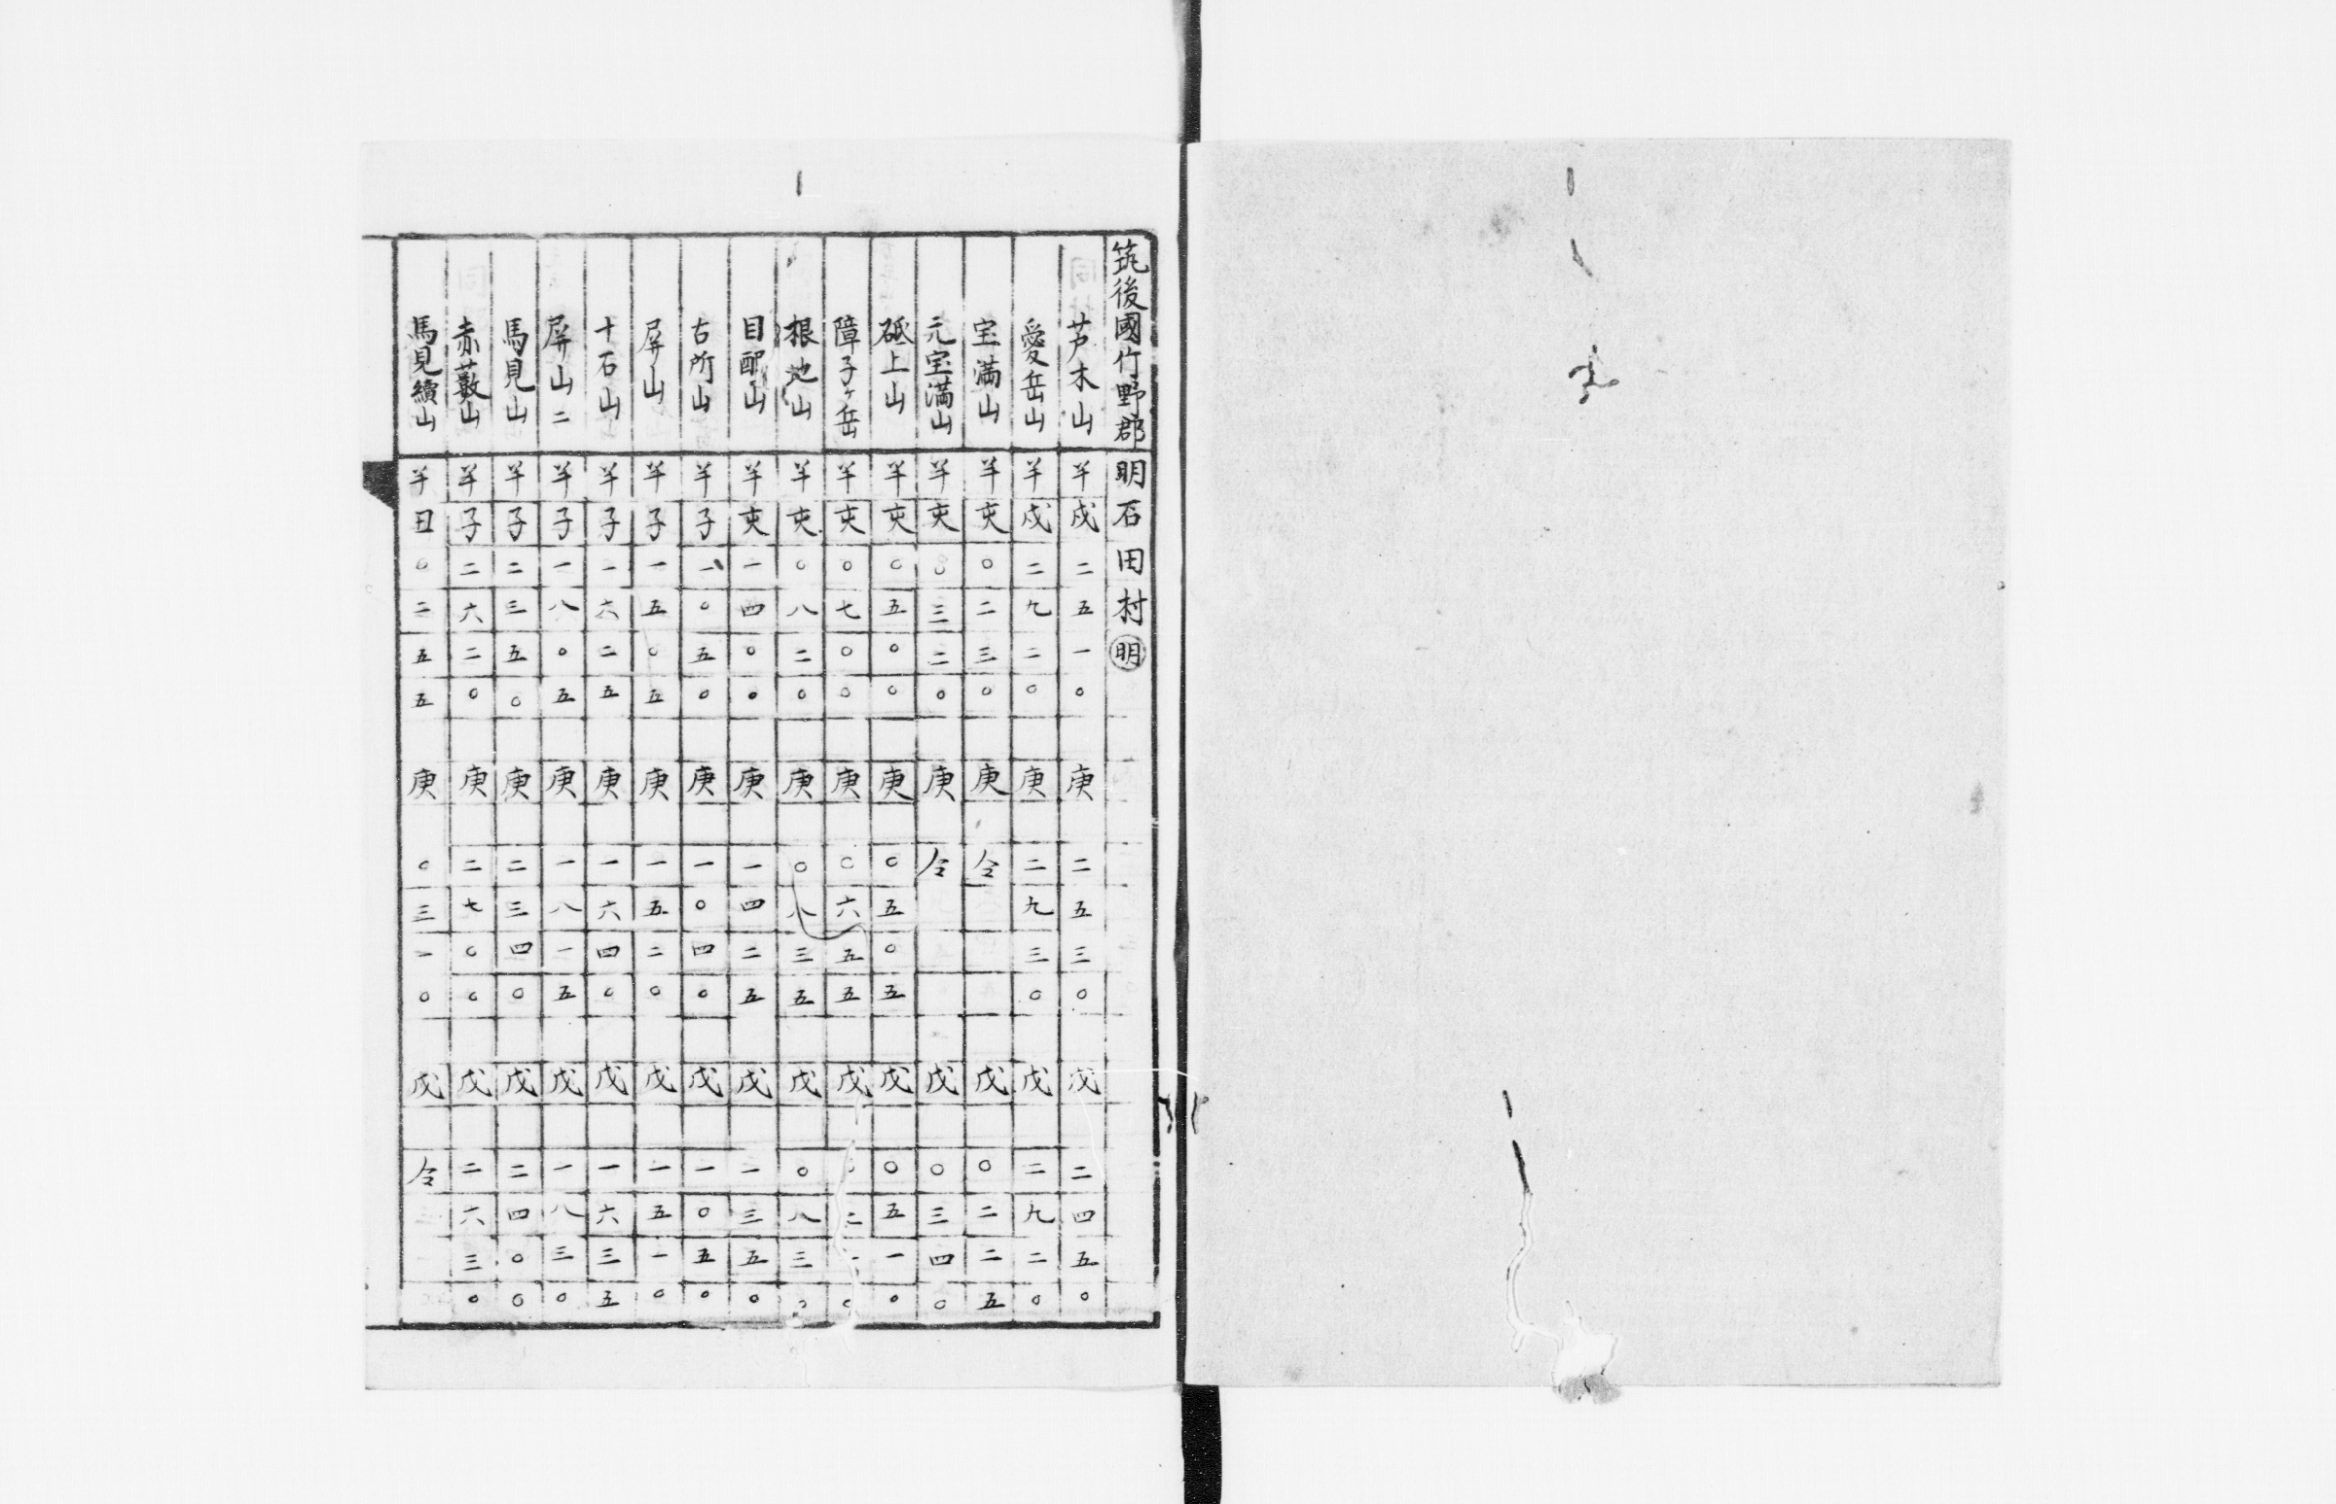 筑後國竹野郡 明石田村 明
芦木山 羊 戌 二五一〇 庚 二五三〇 戊 二四五〇
愛岳山 羊 戌 二九二〇 庚 二九三〇 戊 二九二〇
宝満山 羊 亥 〇二三〇 庚 令 戊 〇二二五
元宝満山 羊 亥 〇三二〇 庚 令 戊 〇三四〇
砥上山 羊 亥 〇五〇〇 庚 〇五〇五 戊 〇五一〇
障子ヶ岳 羊 亥 〇七〇〇 庚 〇六五五 戊
根地山 羊 亥 〇八二〇 庚 〇八三五 戊 〇八三〇
目配山 羊 亥 一四〇〇 庚 一四二五 戊 一三五〇
古所山 羊 子 一〇五〇 庚 一〇四〇 戊 一〇五〇
屏山 羊 子 一五〇五 庚 一五二〇 戊 一五一〇
十石山 羊 子 一六二五 庚 一六四〇 戊 一六三五
屏山二 羊 子 一八〇五 庚 一八一五 戊 一八三〇
馬見山 羊 子 二三五〇 庚 二三四〇 戊 二四〇〇
赤藪山 羊 子 二六二〇 庚 二七〇〇 戊 二六三〇
馬見續山 羊 丑 〇二五五 庚 〇三一〇 戊 令